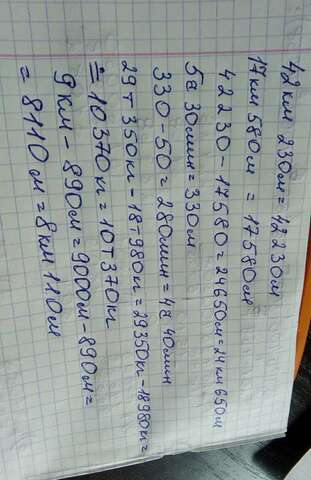 42км 230м = 42230м
17км 580м = 17580м
42230 - 17580 = 24650м = 24км 650м
5ч 30мин = 330м
330 - 50 = 280мин = 4ч 40мин
29т 350кг - 18т980кг = 29350кг - 18980кг =
= 10370кг = 10т 370кг
9км - 890м = 9000м - 890м =
= 8110м = 8км 110м